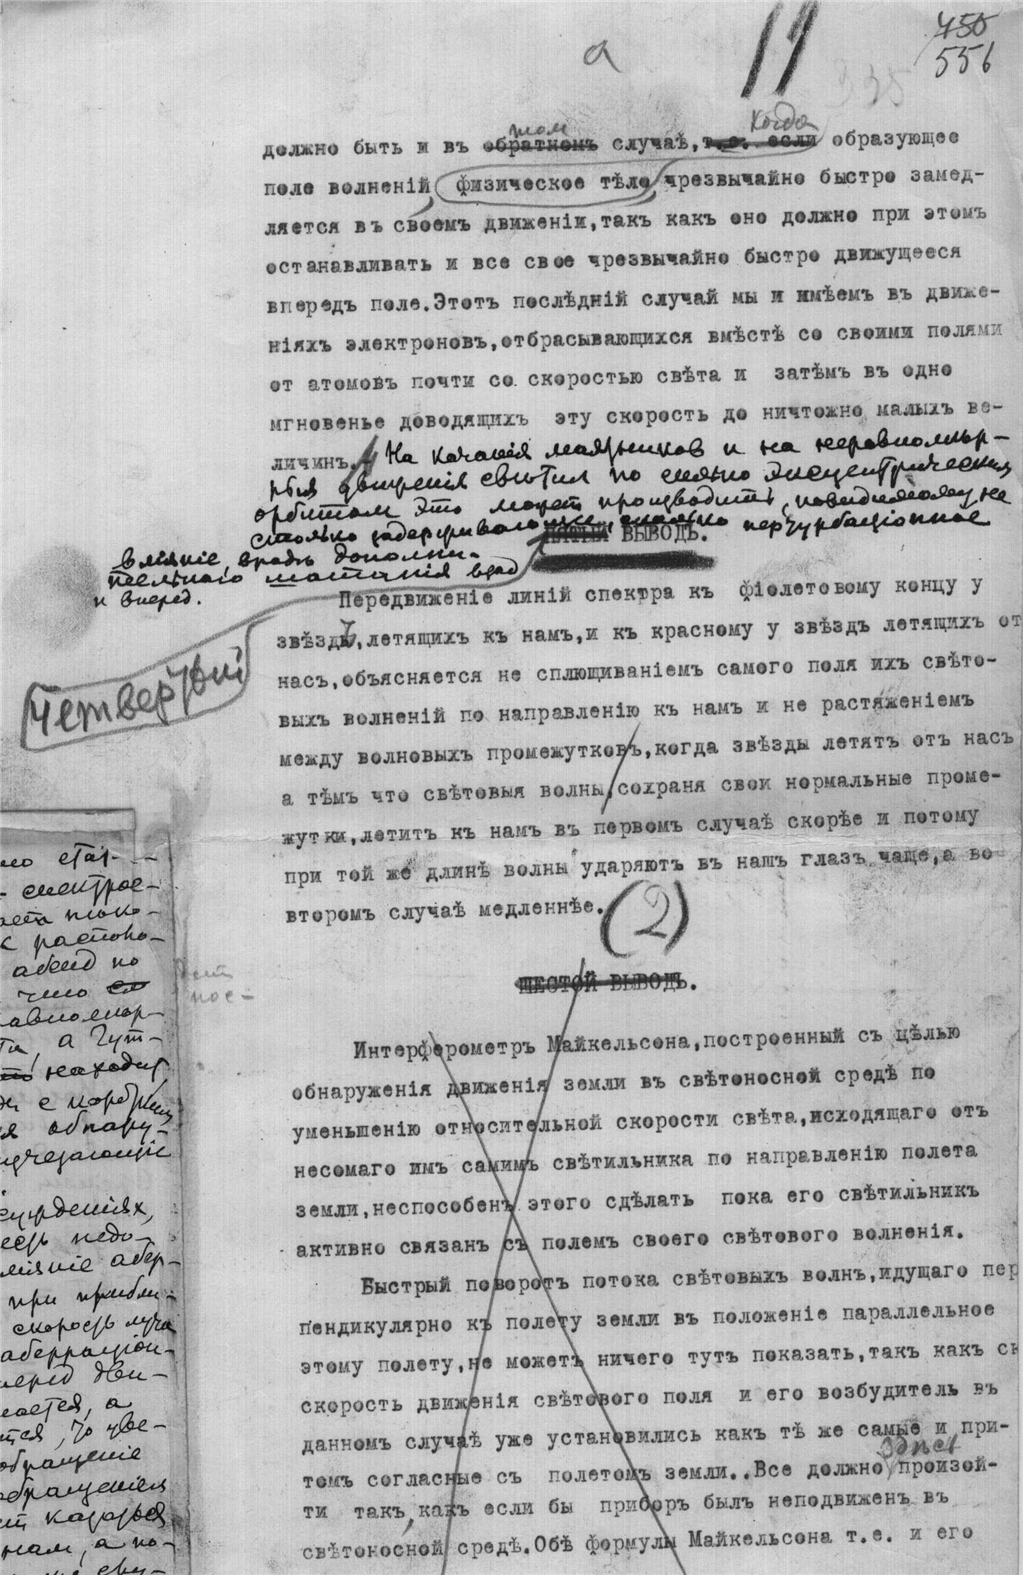 а
11
450
556
335
том
Когда
должно быть и въ обратномъ случаѣ, т.е. если образующее
поле волненій физическое тѣло чрезвычайно быстро замед-
ляется въ своемъ движеніи, такъ какъ оно должно при этомъ
останавливать и все свое чрезвычайно быстро движущееся
впередъ поле. Этотъ послѣдній случай мы и имѣемъ въ движе-
ніяхъ электроновъ, отбрасывающихся вмѣстѣ со своими полями
от атомовъ почти со скоростью свѣта и затѣмъ въ одно
мгновенье доводящихъ эту скорость до ничтожно малыхъ ве-
личинъ. На качанія маятников и на неравномѣр-
ныя движенія свѣтил по сильно эксцентрическим
орбитам это может производить, повидимому, не
столько задерживающее, сколько пертурбаціонное
вліяніе, вродѣ дополни-
тельнаго шатанія взад
и вперед.
ПЯТЫЙ ВЫВОДЪ.
Четвертый
Передвиженіе линій спектра къ фіолетовому концу у
звѣздъ, летящихъ къ намъ, и къ красному у звѣздъ летящихъ от
насъ, объясняется не сплющиваніемъ самого поля ихъ свѣто-
выхъ волненій по направленію къ намъ и не растяженіемъ
между волновыхъ промежутковъ, когда звѣзды летятъ отъ насъ
а тѣмъ что свѣтовыя волны, сохраня свои нормальные проме-
жутки, летитъ къ намъ въ первомъ случаѣ скорѣе и потому
при той же длинѣ волны ударяютъ въ нашъ глазъ чаще, а во
второмъ случаѣ медленнѣе.
(2)
ШЕСТОЙ ВЫВОДЪ.
Интерферометръ Майкельсона, построенный съ цѣлью
обнаруженія движенія земли въ свѣтоносной средѣ по
уменьшенію относительной скорости свѣта, исходящаго отъ
несомаго имъ самимъ свѣтильника по направленію полета
земли, неспособенъ этого сдѣлать пока его свѣтильникъ
активно связанъ съ полемъ своего свѣтового волненія.
Быстрый поворотъ потока свѣтовыхъ волнъ, идущаго пер
пендикулярно къ полету земли въ положеніе параллельное
этому полету, не можетъ ничего тутъ показать, такъ какъ ск
скорость движенія свѣтового поля и его возбудитель въ
данномъ случаѣ уже установились какъ тѣ же самые и при-
здѣсь
томъ согласные съ полетомъ земли.. Все должно произой-
ти такъ, какъ если бы приборъ былъ неподвиженъ въ
свѣтоносной средѣ. Обѣ формулы Майкельсона т.е. и его
спектрос-
к располо-
аберд по
число
авномѣр-
а Гут-
находит
с коротким
обнару-
изчезающіе
сужденіях,
недо-
вліяніе абер-
при прибли-
скорость луча
аберраціон-
перед дви-
ается, а
обращеніе
обращеніем
казаться
нам, а по-